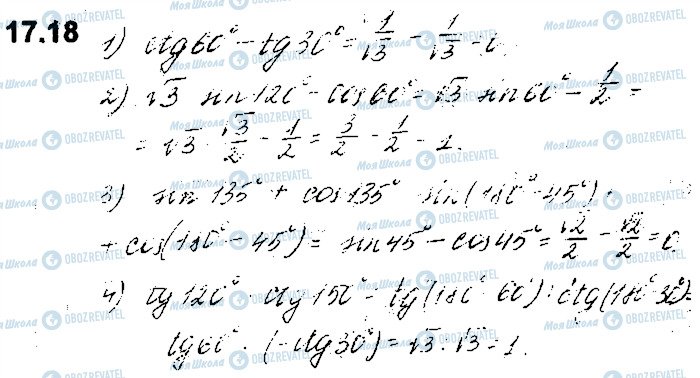 17.18
1) ctg60° - tg30° = 1/√3 - 1/√3 - 0.
2) √3 sin120° - cos60° = √3 sin60° - 1/2 =
= √3 · √3/2 - 1/2 = 3/2 - 1/2 - 1.
3) sin135° + cos135° sin(180° - 45°) +
+ cos(180° - 45°) = sin45° - cos45° = √2/2 - √2/2 = 0
4) tg120° ctg150° - tg(180° 60°) · ctg(180° 30°) =
tg60° · (-ctg30°) = √3 · √3 - 1.